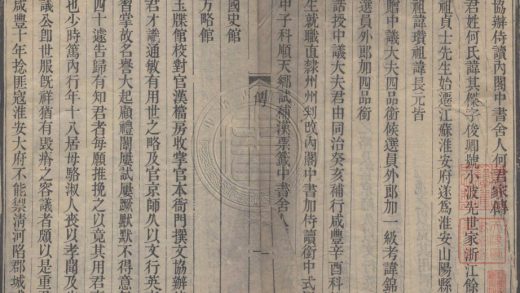 協辦侍讀內閣中書舍人何君家傳
君姓何氏諱其傑字俊卿號小波先世家浙江餘
祖貞士先生始遷江蘇淮安府遂為淮安山陽縣
祖諱瓊祖諱長元皆
贈中議大夫四品銜候選員外郎加一級考諱錦
選員外郎加四品銜
誥授中議大夫君由同治癸亥補行咸豐辛酉科
生就職直隸州州判改內閣中書加侍讀銜中式
甲子科順天鄉試補漢票籤中書舍人
傳
一
國史館
方略館
玉牒館校對官漢檔房收掌官本衙門撰文協辦
君才識通敏有用世之略及官京師久以文行英
習掌故名譽大起顧禮闈屢試屢蹶默默不得意
四十遽告歸有知君者每願推挽之以竟其用君
也少時篤內行年十八居母駱淑人喪以孝聞及
議公卽世服旣祥猶有毀瘠之容議者頗以是重君
咸豐十年捻匪寇淮安大府不能禦清河陷郡城